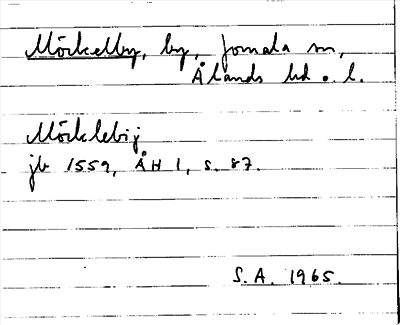 Mörkelby, by, Jomala sn,
Ålands hd o. l.
Mörcklebij
jb 1559, ÅH 1, s. 87.
S.A. 1965.